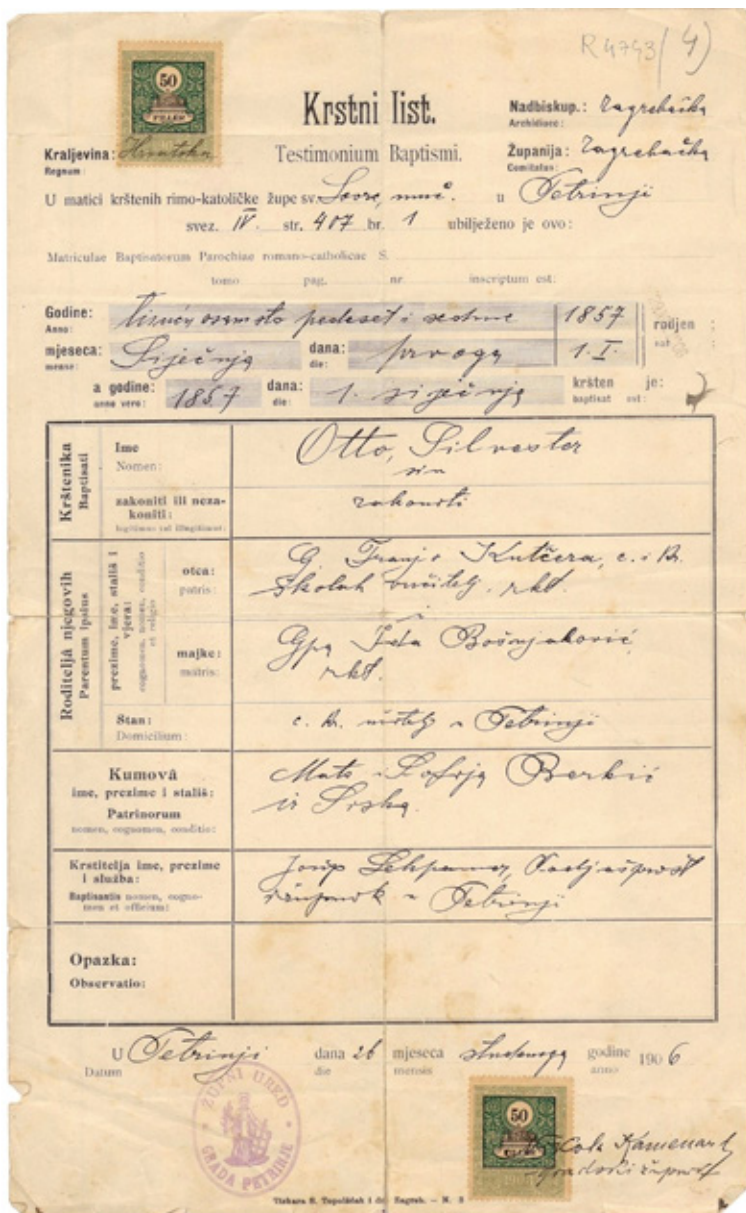 R 4743/4)
50
FILLER
Krstni list.
Testimonium Baptismi.
Nadbiskup.: Zagrebačka
Archidioec:
Kraljevina: Hrvatska
Regnum:
Županija: Zagrebačka
Comitatus:
U matici krštenih rimo-katoličke župe sv. Lovre, muč. u Petrinji
svez. IV. str. 407 br. 1 ubilježeno je ovo:
Matriculae Baptisatorum Parochiae romano-catholicae S.
tomo pag. nr inscriptum est:
Godine: tisuću osamsto pedeset i sedme 1857 rodjen :
Anno: nat :
mjeseca: Siječnja dana: prvoga 1.I.
mense: die:
a godine: 1857 dana: 1. siječnja kršten je:
anno vero: die: baptisat est:
Krštenika
Baptisati
Ime
Nomen:
Otto, Silvester
sin
zakoniti ili neza-
koniti:
legitimus vel illegitimus:
zakoniti
Roditeljâ njegovih
Parentum ipsius
prezime, ime, stališ i
vjera:
cognomen, nomen, conditio
et religio
otca:
patris:
G. Franjo Kutčera, c. i kr.
školah učitelj, rkt.
majke:
matris:
Gpa Ida Bošnjaković,
rkt.
Stan:
Domicilium:
c. kr. učitelj u Petrinji
Kumovâ
ime, prezime i stališ:
Patrinorum
nomen, cognomen, conditio:
Mato i Sofija Berkić
iz Siska.
Krstitelja ime, prezime
i služba:
Baptisantis nomen, cogno-
men et officium:
Josip
župnik u Petrinji
Opazka:
Observatio:
U Petrinji dana 26 mjeseca studenoga godine 1906
Datum die mensis anno
ŽUPNI URED
GRADA PETRINJE
50
Kamenar
gradski župnik
Tiskara S. Topolščak i dr. Zagreb. — N. 3